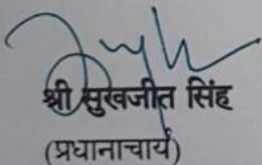 श्री सुखजीत सिंह
(प्रधानाचार्य)